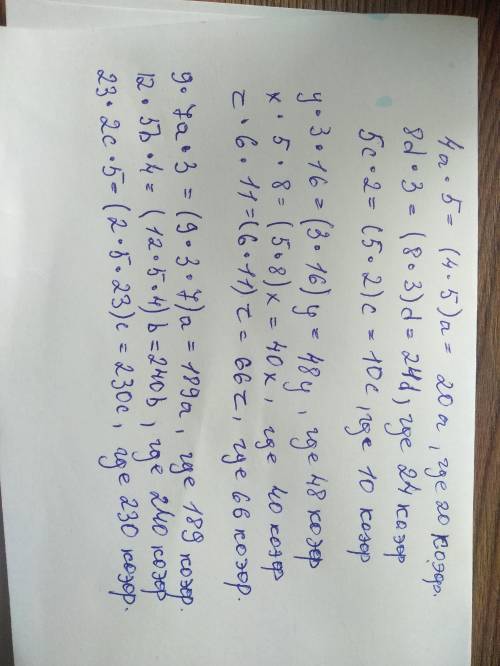 4a · 5 = (4 · 5)a = 20a, где 20 коэф.
8d · 3 = (8 · 3)d = 24d, где 24 коэф
5c · 2 = (5 · 2)c = 10c, где 10 коэф
y · 3 · 16 = (3 · 16)y = 48y, где 48 коэф
x · 5 · 8 = (5 · 8)x = 40x, где 40 коэф
τ · 6 · 11 = (6 · 11)τ = 66τ, где 66 коэф.
9 · 7a · 3 = (9 · 3 · 7)a = 189a, где 189 коэф.
12 · 5b · 4 = (12 · 5 · 4)b = 240b, где 240 коэф
23 · 2c · 5 = (2 · 5 · 23)c = 230c, где 230 коэф.